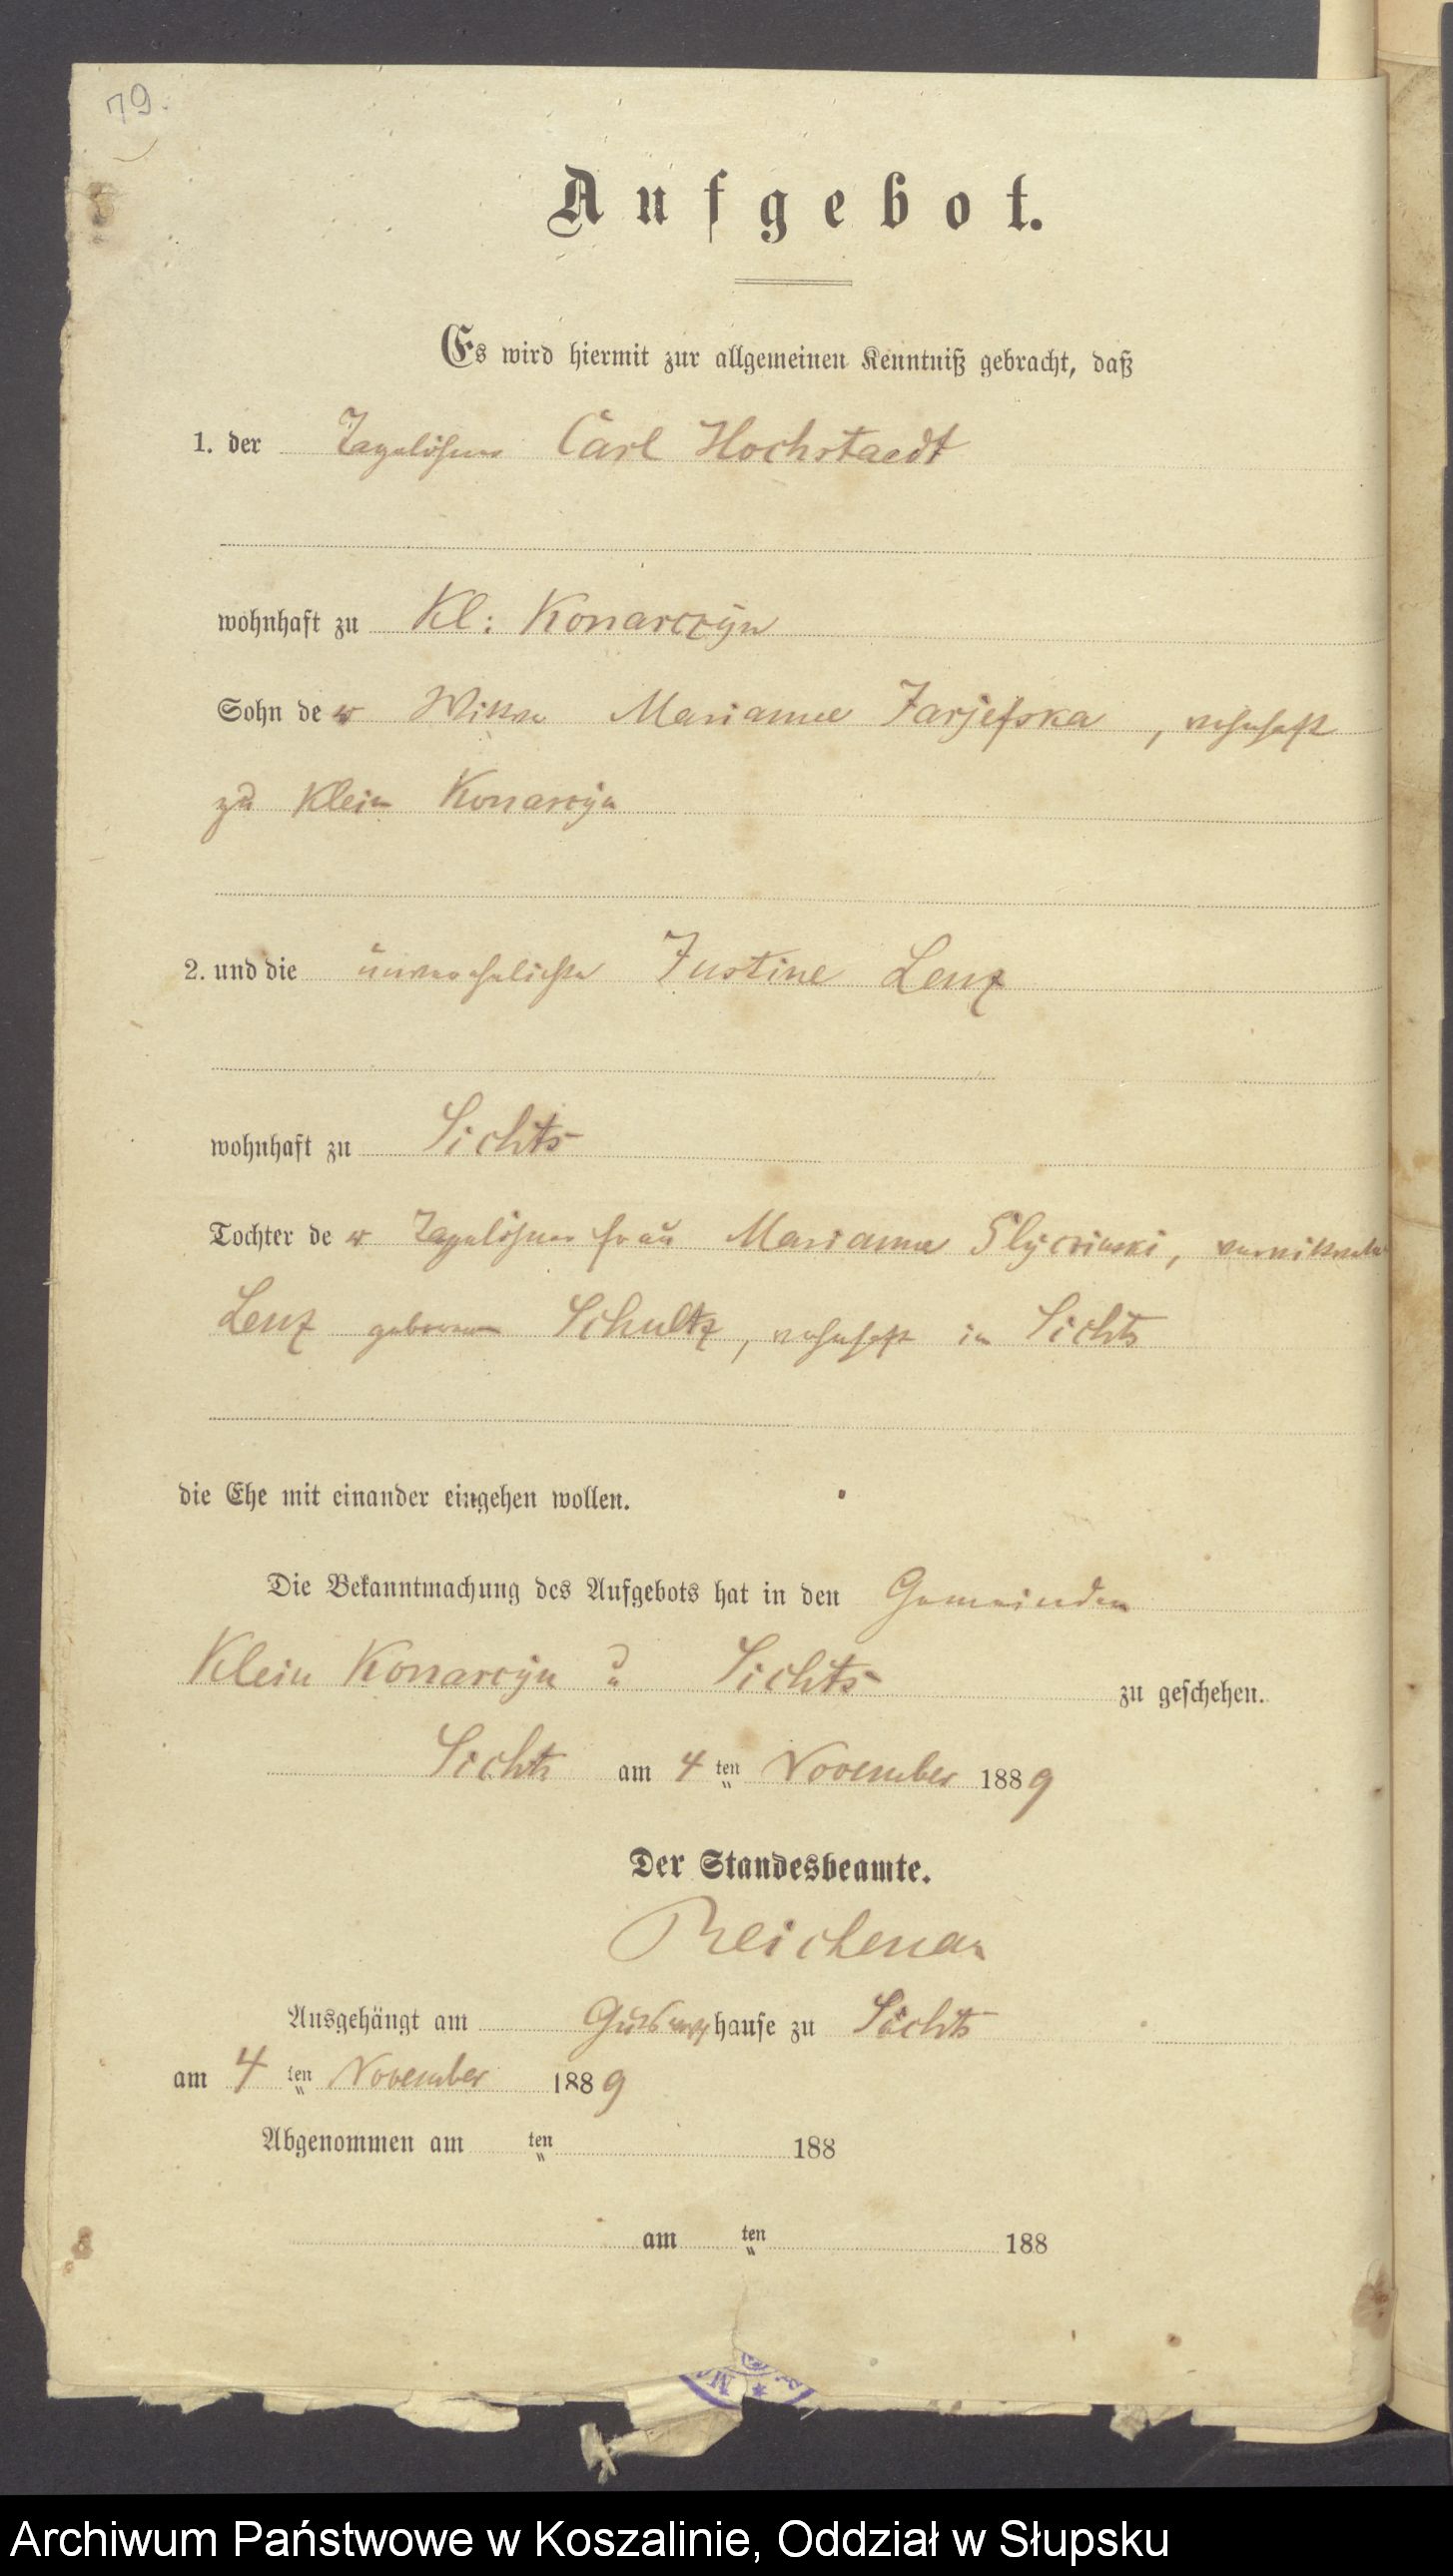 79.
Aufgebot.
Es wird hiermit zur allgemeinen Kenntniß gebracht, daß
1. der Tagelöhner Carl Hochstaedt
wohnhaft zu Kl: Konarczyn
Sohn der Wittwe Marianne Jarjefska, wohnhaft
zu Klein Konarcyn
2. und die unverehelichte Justine Lenz
wohnhaft zu Sichts
Tochter der Tagelöhnerfrau Marianna verwittwete
Lenz geborene Schultz, wohnhaft in Sichts
die Ehe mit einander eingehen wollen.
Die Bekanntmachung des Aufgebots hat in den Gemeinden
Klein Konarcyn u Sichts zu geschehen.
Sichts am 4ten November 1889
Der Standesbeamte.
Reichenau
Ausgehängt am hause zu Sichts
am 4ten November 1889
Abgenommen am ten 188
am ten 188
Archiwum Państwowe w Koszalinie, Oddział w Słupsku